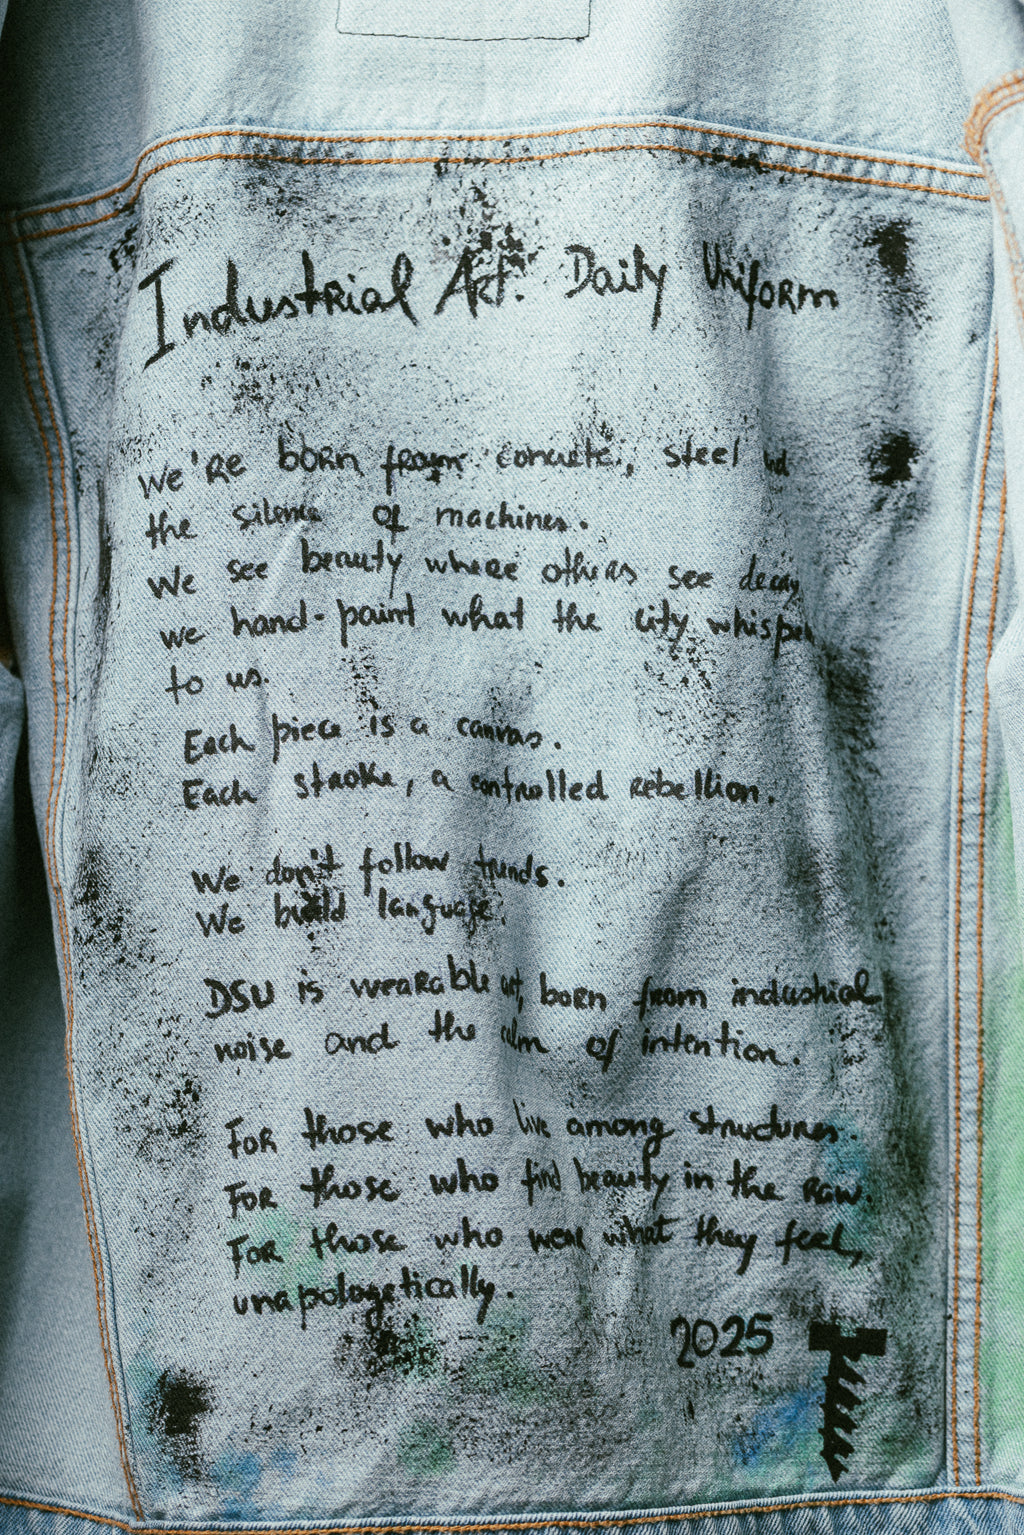 Industrial Art. Daily Uniform
We're born from concrete, steel and
the silence of machines.
We see beauty where others see decay
we hand-paint what the city whispers
to us.
Each piece is a canvas.
Each stroke, a controlled rebellion.
We don't follow trends.
We build language.
DSU is wearable art, born from industrial
noise and the calm of intention.
For those who live among structures.
For those who find beauty in the raw.
For those who wear what they feel,
unapologetically.
2025